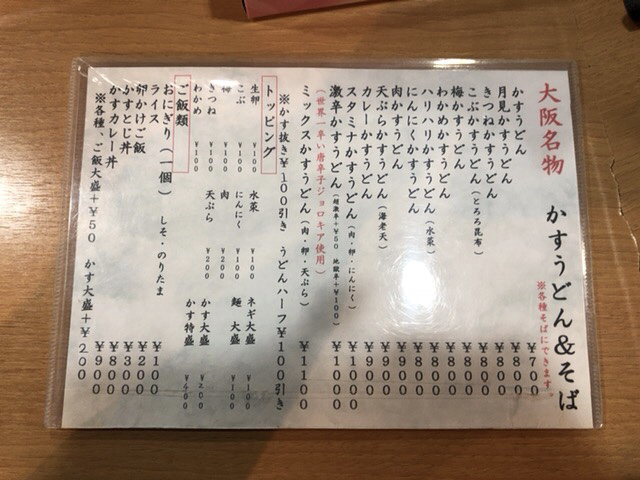 大阪名物 かすうどん&そば
※各種そばにできます。
かすうどん ¥700
月見かすうどん ¥800
きつねかすうどん ¥800
こぶかすうどん(とろろ昆布) ¥800
梅かすうどん ¥800
わかめかすうどん ¥800
ハリハリかすうどん(水菜) ¥800
にんにくかすうどん ¥900
肉かすうどん ¥900
天ぷらかすうどん(海老天) ¥900
カレーかすうどん ¥900
スタミナかすうどん(肉・卵・にんにく) ¥1000
激辛かすうどん(超激辛+¥50 地獄辛+¥100) ¥1000
(世界一辛い唐辛子ジョロキア使用)
ミックスかすうどん(肉・卵・天ぷら) ¥1100
※かす抜き¥100引き うどんハーフ¥100引き
トッピング
生卵 ¥100 水菜 ¥100 ネギ大盛 ¥100
こぶ ¥100 にんにく ¥100 麺 大盛 ¥100
梅 ¥100 肉 ¥200 かす大盛 ¥200
きつね ¥100 天ぷら ¥200 かす特盛 ¥400
わかめ ¥100
ご飯類
おにぎり(一個) しそ・のりたま ¥100
ライス ¥200
卵かけご飯 ¥300
かすとじ丼 ¥800
かすカレー丼 ¥900
※各種、ご飯大盛+¥50 かす大盛+¥200